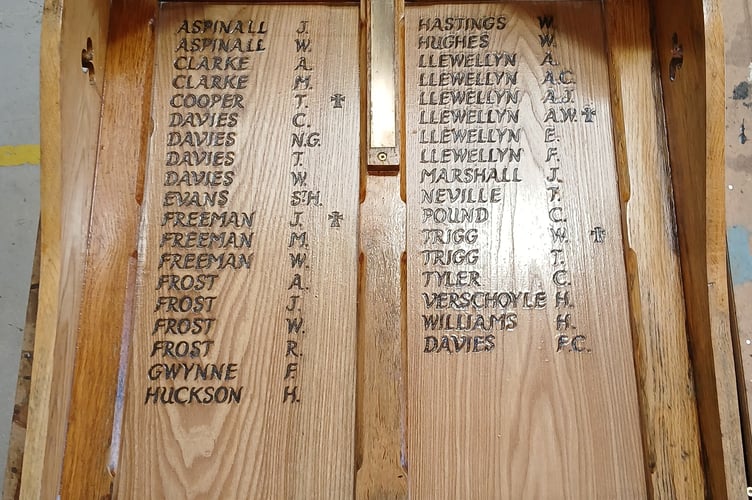 ASPINALL J.
ASPINALL W.
CLARKE A.
CLARKE M.
COOPER T. ✝
DAVIES C.
DAVIES N.G.
DAVIES T.
DAVIES W.
EVANS ST.H.
FREEMAN J. ✝
FREEMAN M.
FREEMAN W.
FROST A.
FROST J.
FROST W.
FROST R.
GWYNNE F.
HUCKSON H.
HASTINGS W.
HUGHES W.
LLEWELLYN A.
LLEWELLYN A.C.
LLEWELLYN A.J.
LLEWELLYN A.W. ✝
LLEWELLYN E.
LLEWELLYN F.
MARSHALL J.
NEVILLE F.
POUND C.
TRIGG W. ✝
TRIGG T.
TYLER C.
VERSCHOYLE H.
WILLIAMS H.
DAVIES F.C.